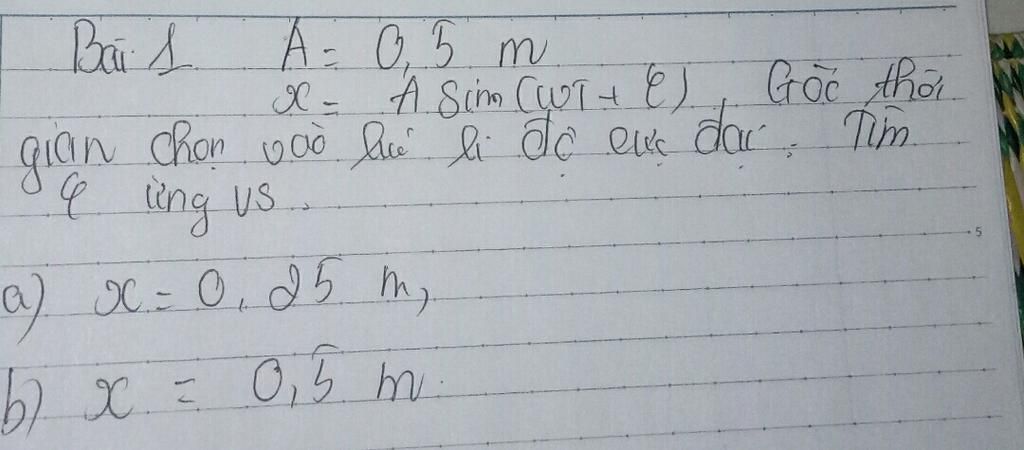 Bài 1 A = 0,5 m
x = A sin(ωt + φ), Gốc thời
gian chọn vào lúc li độ cực đại. Tìm
φ ứng vs.
5
a) x = 0,25 m,
b) x = 0,5 m.